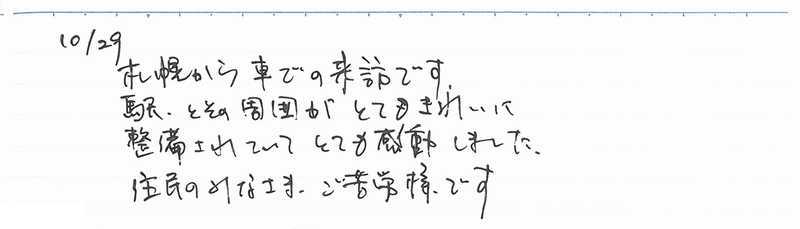 10/29
札幌から車での来訪です。
駅、とその周囲がとてもきれいに
整備されていてとても感動しました、
住民のみなさま、ご苦労様です